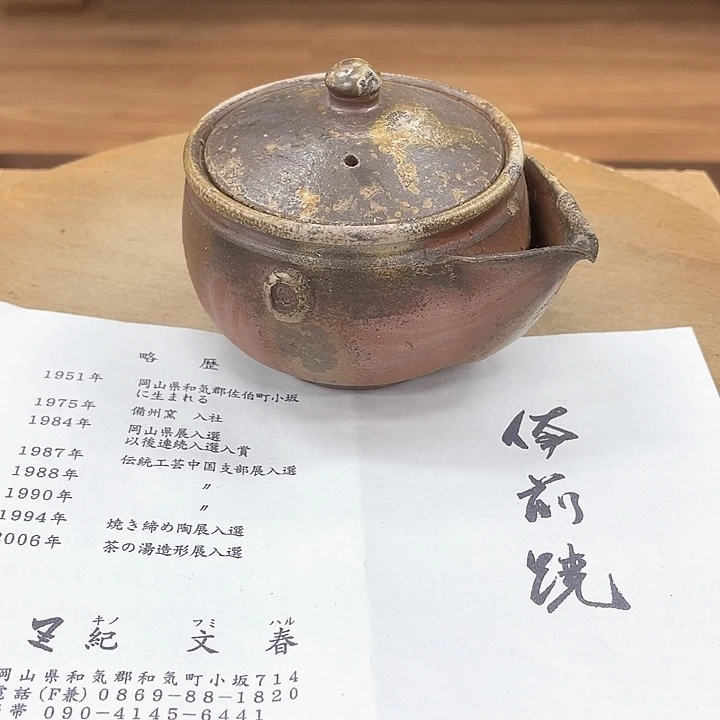 略歴
1951年 岡山県和気郡佐伯町小坂
に生まれる
1975年 備州窯 入社
1984年 岡山県展入選
以後連続入選入賞
1987年 伝統工芸中国支部展入選
1988年 〃
1990年 〃
1994年 焼き締め陶展入選
2006年 茶の湯造形展入選
キノ フミ ハル
紀 文春
岡山県和気郡和気町小坂714
電話(F兼)0869-88-1820
携帯 090-4145-6441
備前焼